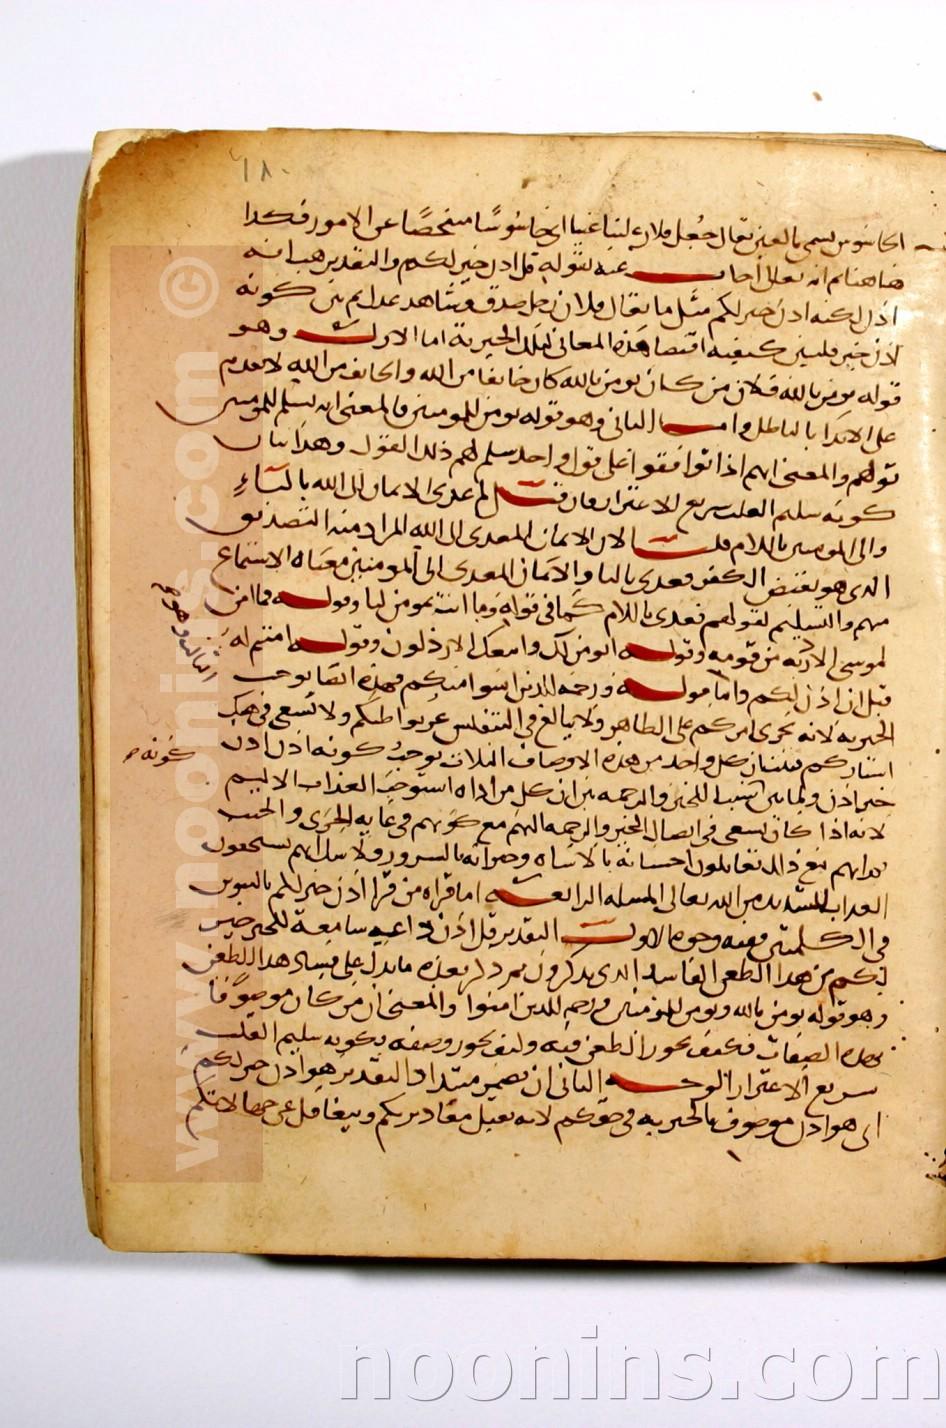 ٦٨٠
الجاسوس يسمى بالعين يقال جعل فلان علينا عينا اي جاسوسا متفحصا عن الامور فكذا
هاهنا ثم انه تعالى اجاب عنه بقوله قل اذن خير لكم والتقدير هب انه
اذن لكنه اذن خير لكم مثل ما يقال فلان رجل صدق وشاهد عدل ثم بين كونه
اذن خير فلنبين كيفية اقتضا هذه المعاني لتلك الخيرية اما الاول وهو
قوله يومن بالله فلان من كان يومن بالله كان خايفا من الله والخايف من الله لا يقدم
على الايذا بالباطل واما الثاني وهو قوله يومن للمومنين فالمعنى انه يسلم للمومنين
قولهم والمعنى انهم اذا توافقوا على قول واحد سلم لهم ذلك القول وهذا بيان
كونه سليم القلب سريع الاغترار فان قيل لم عدى الايمان الى الله بالباء
والى المومنين باللام قلت لان الايمان المعدى الى الله المراد منه التصديق
الذي هو نقيض الكفر فعدى بالبا والايمان المعدى الى المومنين معناه الاستماع
منهم والتسليم لقولهم فعدى باللام كما في قوله وما انت بمومن لنا وقوله فما امن
لموسى الا ذرية من قومه وقوله انومن لك واتبعك الارذلون وقوله امنتم له
قبل ان اذن لكم واما قوله ورحمة للذين امنوا منكم فهذه ايضا يوجب
الخيرية لانه يجرى امركم على الظاهر ولا يبالغ في التفتيش عن بواطنكم ولا تسعى في هتك
استاركم فثبت ان كل واحد من هذه الاوصاف الثلاث يوجب كونه اذن
خير اذن ولما بين كونه سببا للخير والرحمة بين ان كل من اذاه استوجب العذاب الاليم
لانه اذا كان يسعى في ايصال الخير والرحمة اليهم مع كونهم في غاية الخزى والخبث
ثم انهم بعد ذلك يقابلون احسانه بالاساه وخيراته بالسرور فلا شك انهم يستحقون
العذاب الشديد من الله تعالى المسله الرابعة اما قراه من قرا اذن خير لكم بالتنوين
في الكلمتين ففيه وجوه الاول التقدير قل اذن واعية سامعة للحق خير
لكم من هذا الطعن الفاسد الذي تذكرون ثم ذكر بعده ما يدل على فساد هذا الطعن
وهو قوله يومن بالله ويومن للمومنين ورحمة للذين امنوا والمعنى ان من كان موصوفا
بهذه الصفات فكيف يجوز الطعن فيه وكيف يجوز وصفه بكونه سليم القلب
سريع الاغترار الوجه الثاني ان يضمر مبتدا والتقدير هو اذن خير لكم
اي هو اذن موصوف بالخيرية في حقكم لانه يقبل معاذيركم ويتغافل عن جهالاتكم
الثالث وهو
كونه
www.noonins.com ©
noonins.com